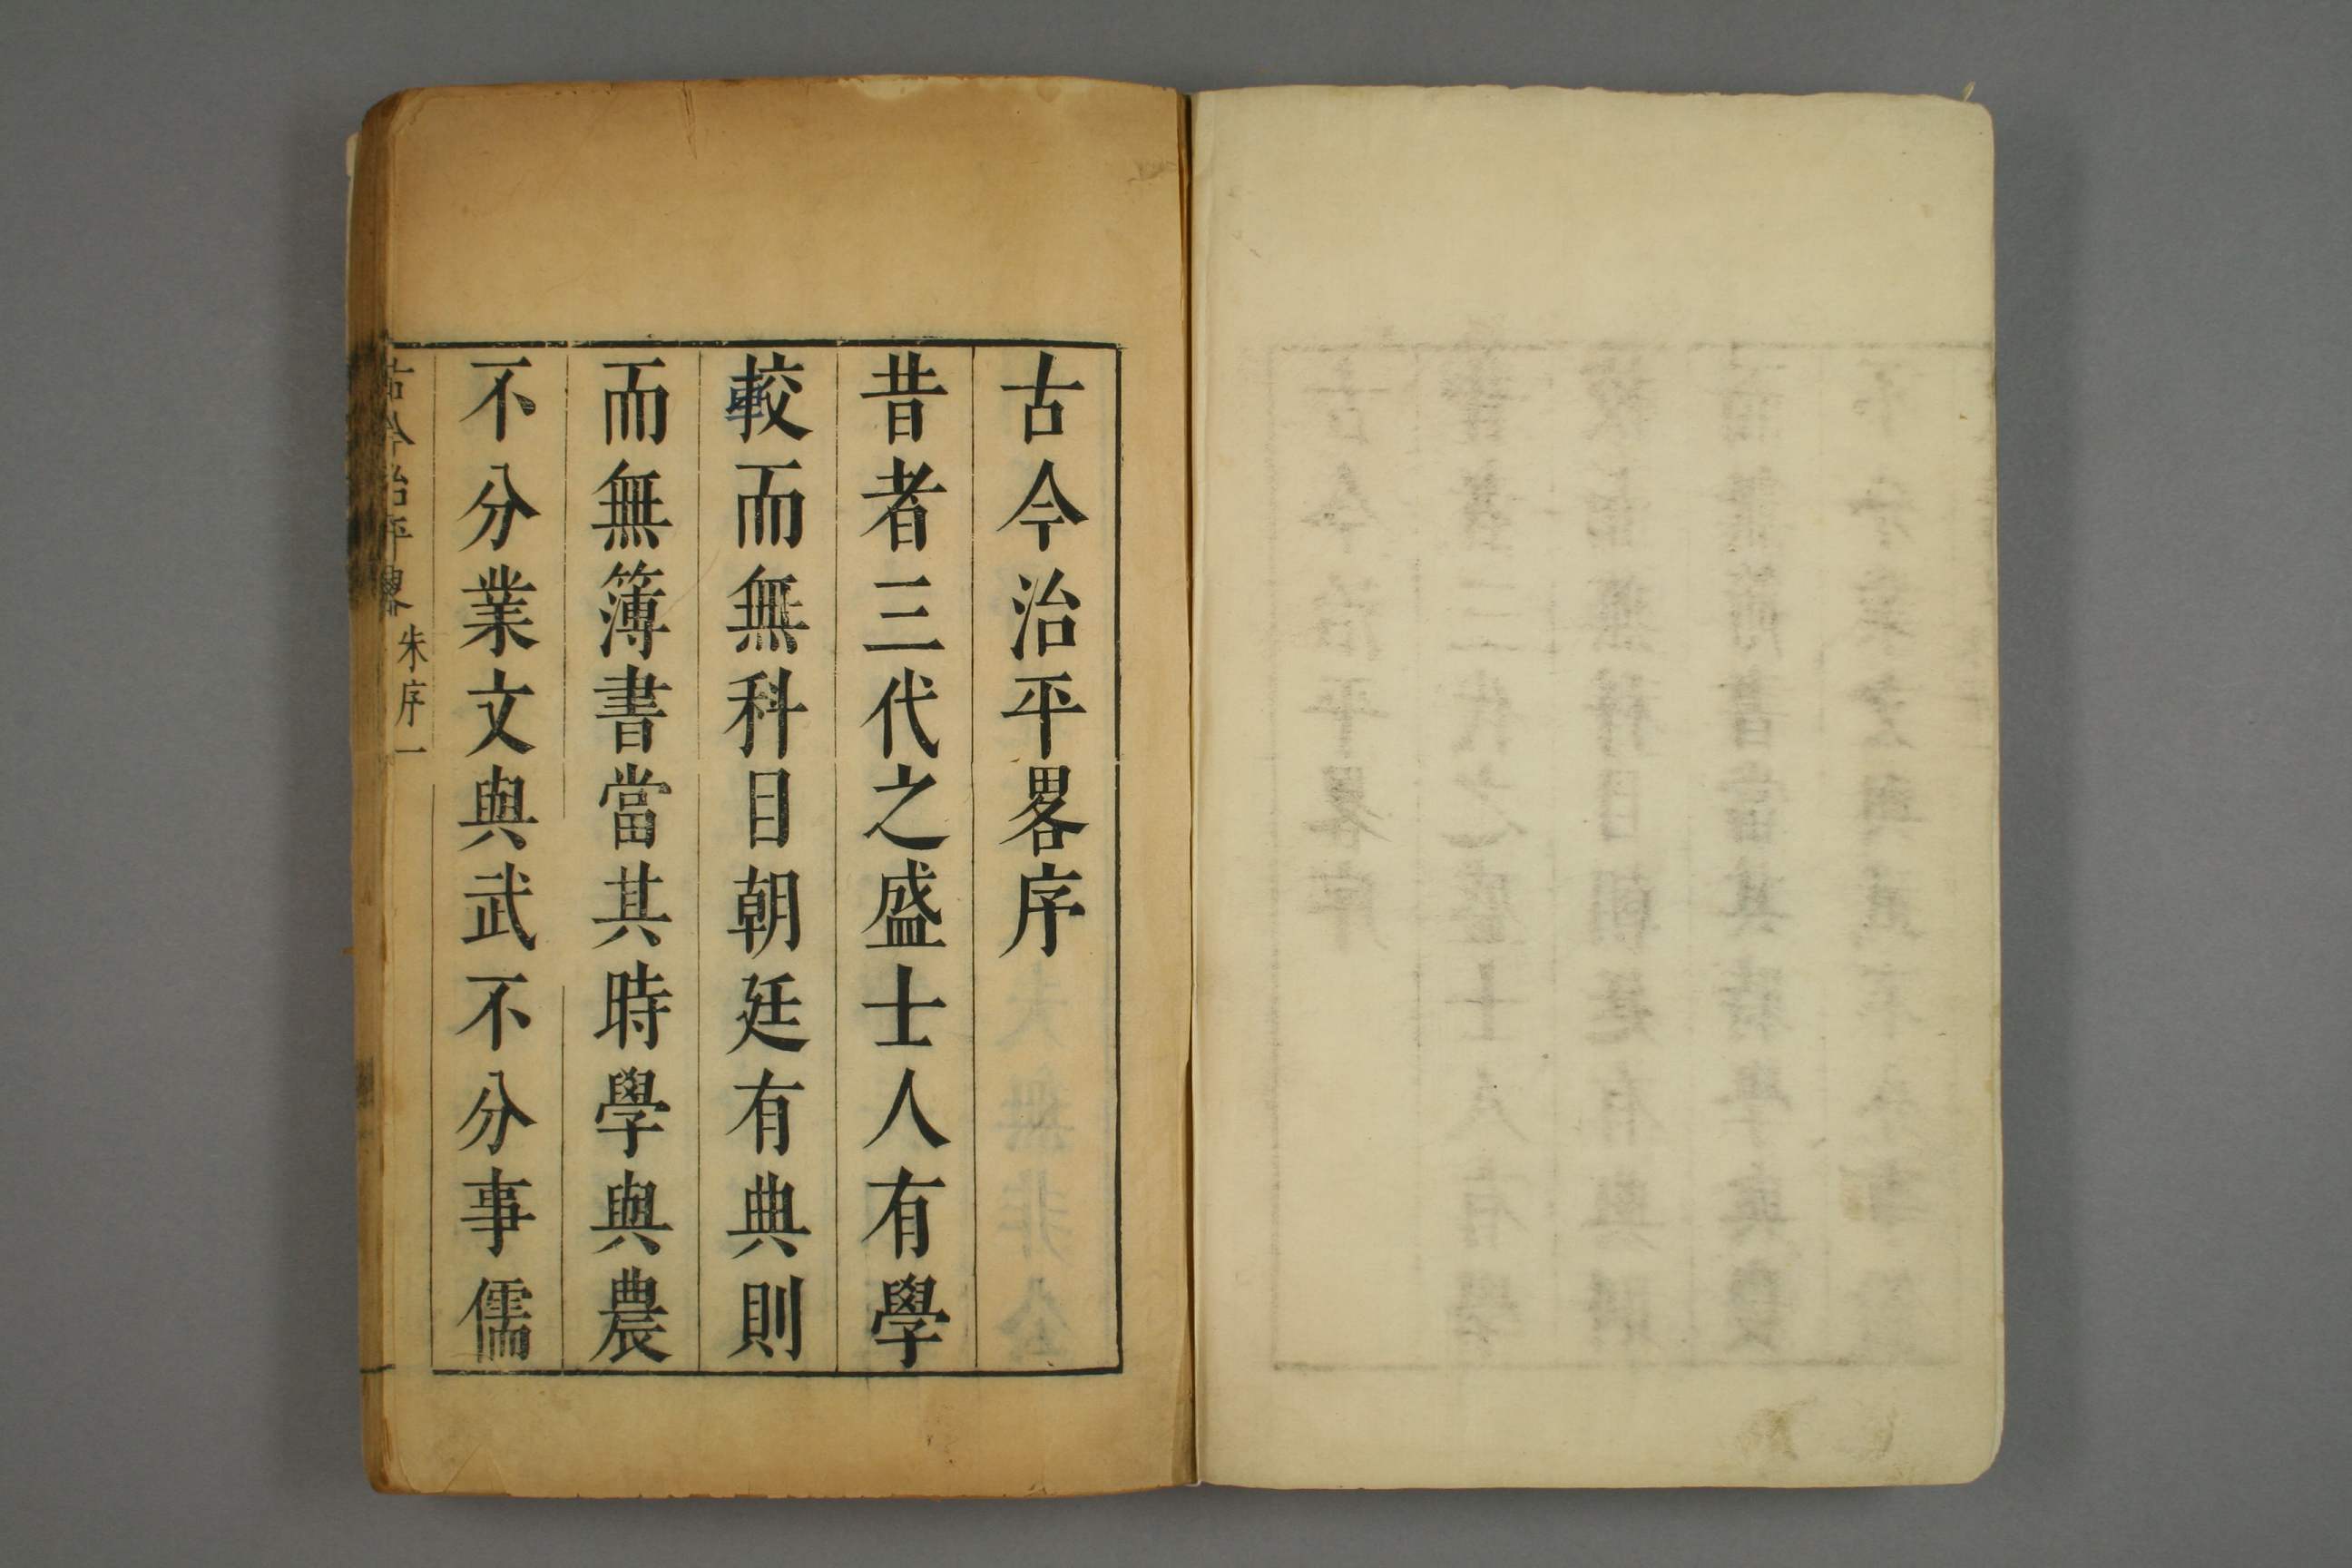 古今治平畧序
昔者三代之盛士人有學
較而無科目朝廷有典則
而無簿書當其時學與農
不分業文與武不分事儒
古今治平畧 朱序 一